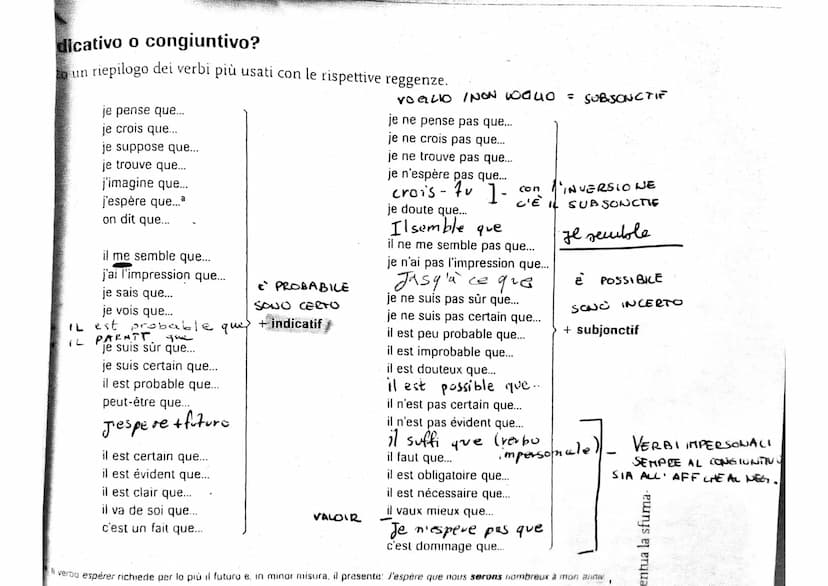 dicativo o congiuntivo?
to un riepilogo dei verbi più usati con le rispettive reggenze.
VOGLIO / NON VOGLIO = SUBSONCTIF
je pense que...
je crois que...
je suppose que...
je trouve que...
j'imagine que...
j'espère que...ª
on dit que...
il me semble que...
j'ai l'impression que...
je sais que...
je vois que...
IL est probable que
IL PARAÎT que
je suis sûr que...
je suis certain que...
il est probable que...
peut-être que...
J'espere + futuro
il est certain que...
il est évident que...
il est clair que...
il va de soi que...
c'est un fait que...
È PROBABILE
SONO CERTO
+ indicatif
je ne pense pas que...
je ne crois pas que...
je ne trouve pas que...
je n'espère pas que...
crois - tu ] - con l'INVERSIONE
C'È IL SUBSONCTIF
je doute que...
Il semble que
il ne me semble pas que...
je semble
je n'ai pas l'impression que...
Jusq'à ce que
je ne suis pas sûr que...
je ne suis pas certain que...
il est peu probable que...
il est improbable que...
il est douteux que...
il est possible que...
il n'est pas certain que...
il n'est pas évident que...
il suffi que (verbo impersonale)
il faut que...
il est obligatoire que...
il est nécessaire que...
VALOIR
il vaux mieux que...
Je n'espere pas que
c'est dommage que...
È POSSIBILE
SONO INCERTO
+ subjonctif
VERBI IMPERSONALI
SEMPRE AL CONGIUNTIVO
SIA ALL' AFF CHE AL NEG.
entua la sfuma-
Il verbo espérer richiede per lo più il futuro e, in minor misura, il presente: J'espère que nous serons nombreux à mon